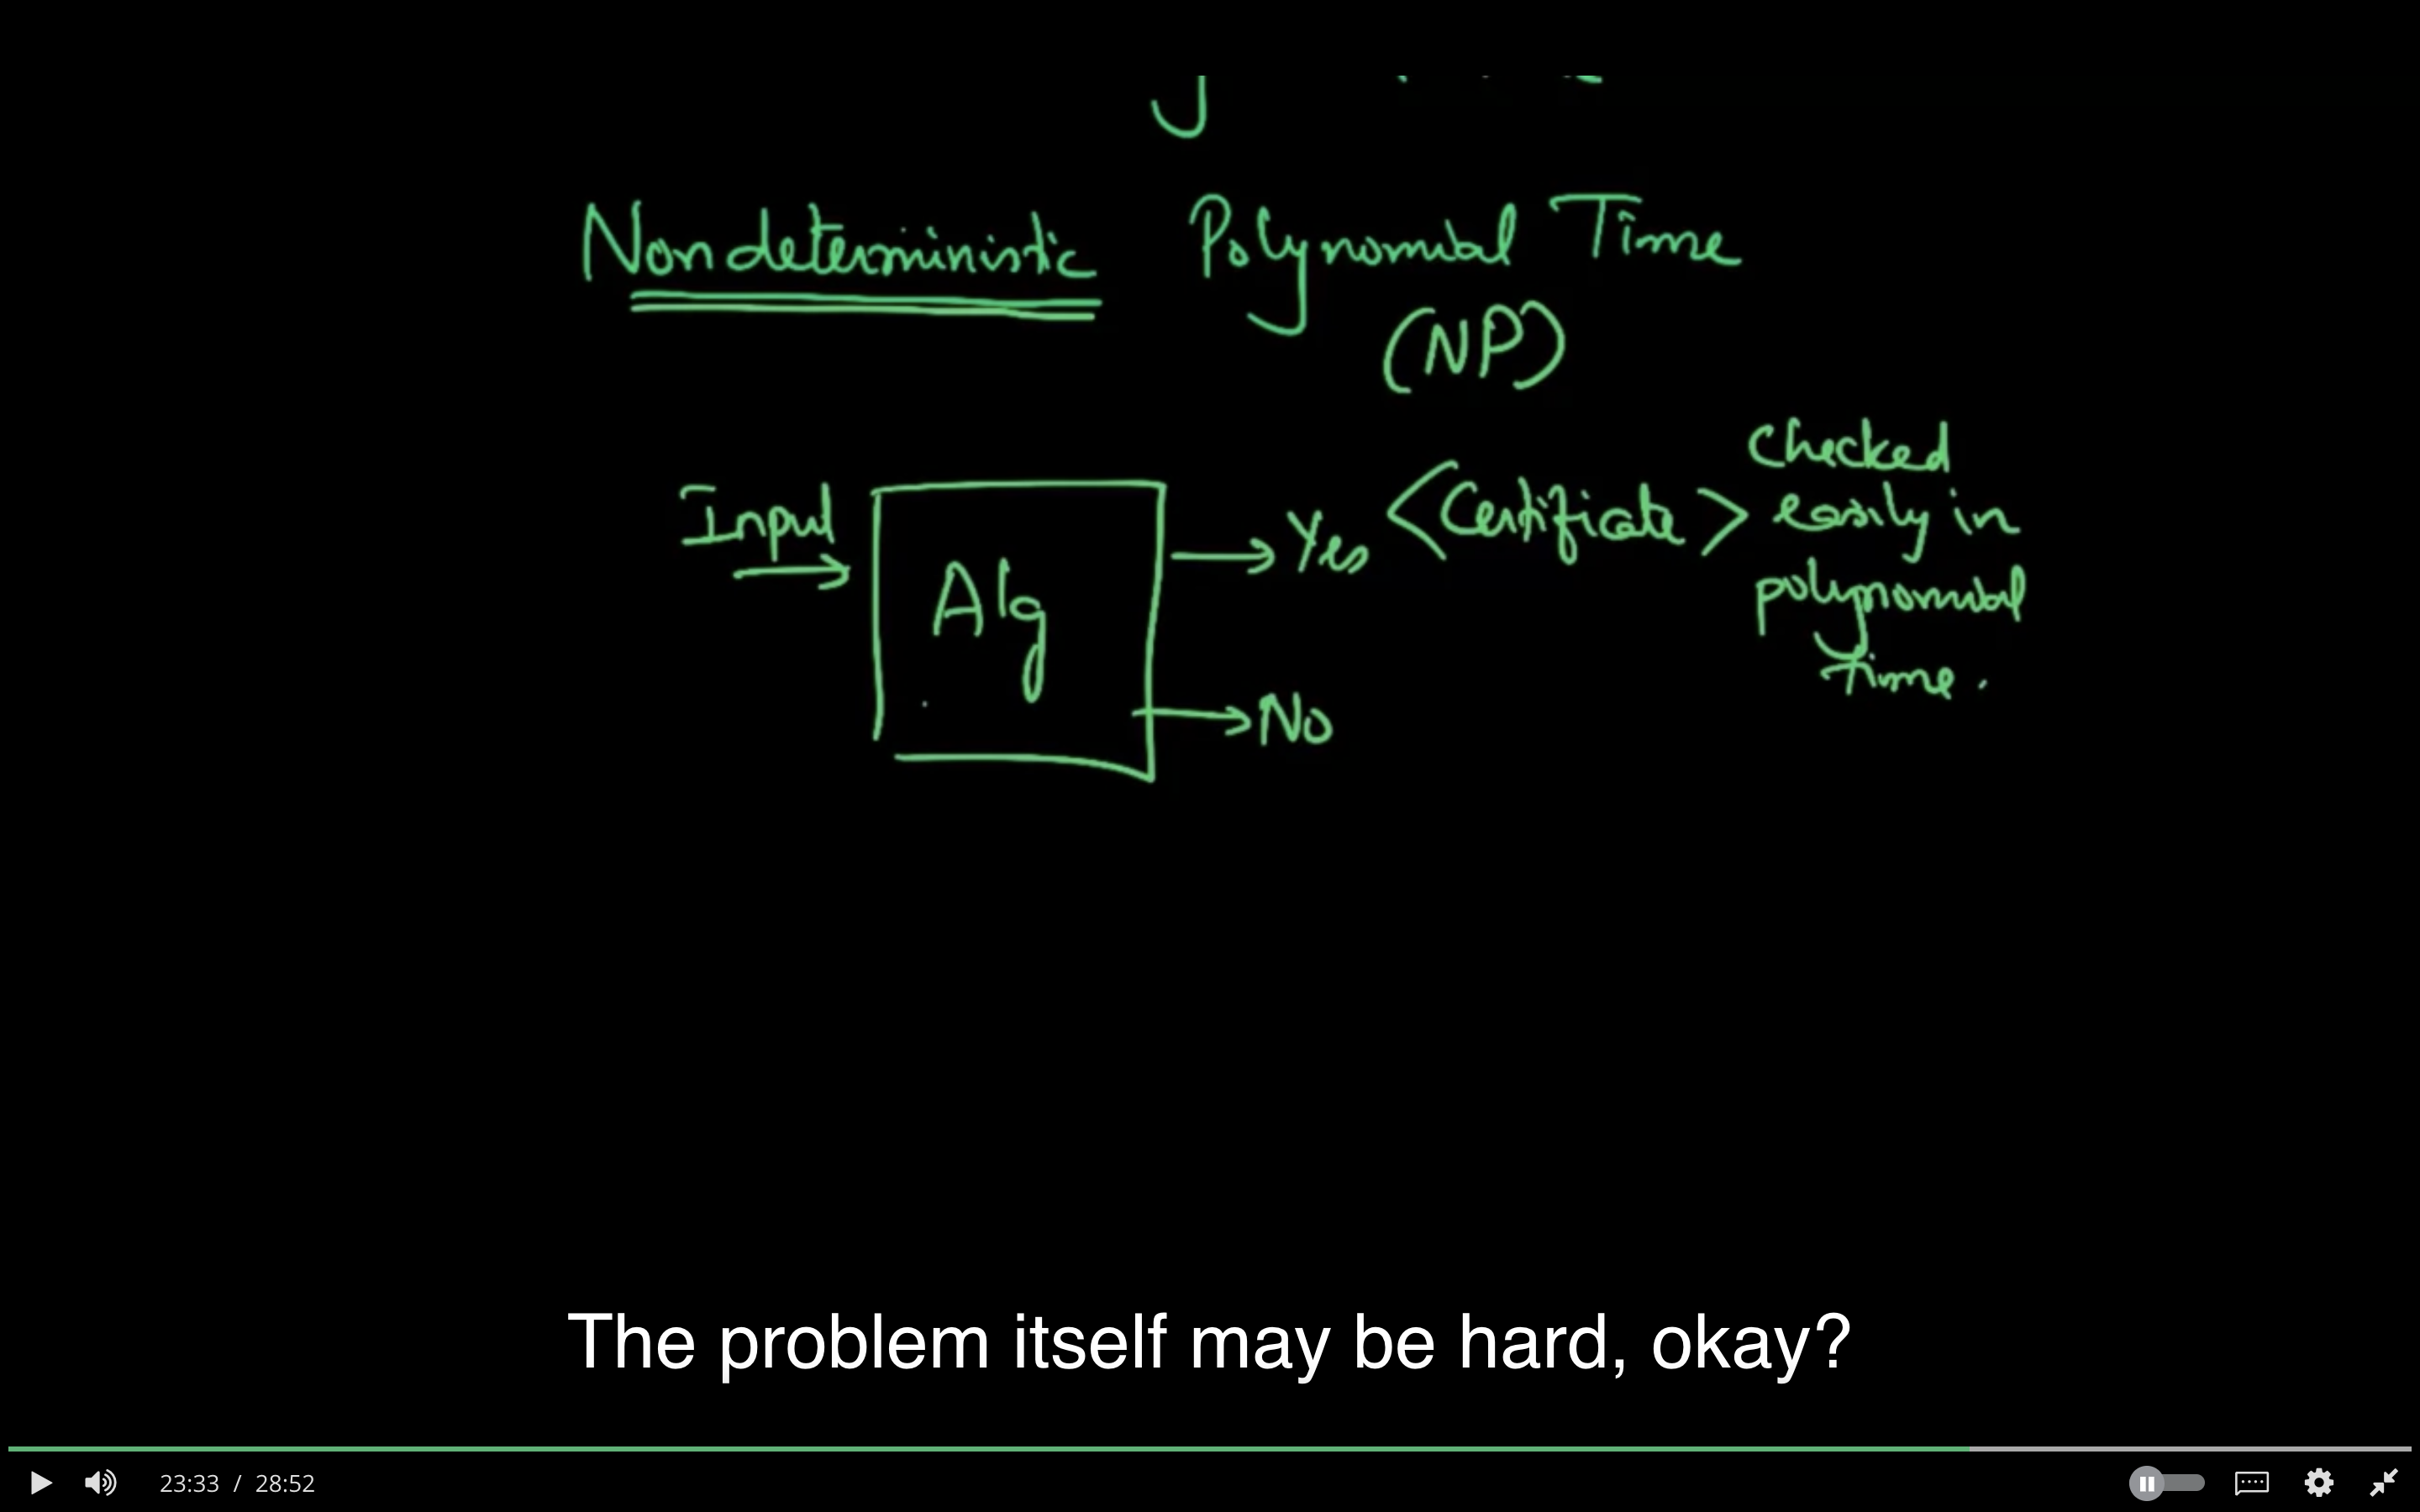 Nondeterministic Polynomial Time
(NP)
Input
Alg
Yes <Certificate> checked
easily in
polynomial
time.
No
The problem itself may be hard, okay?
23:33 / 28:52